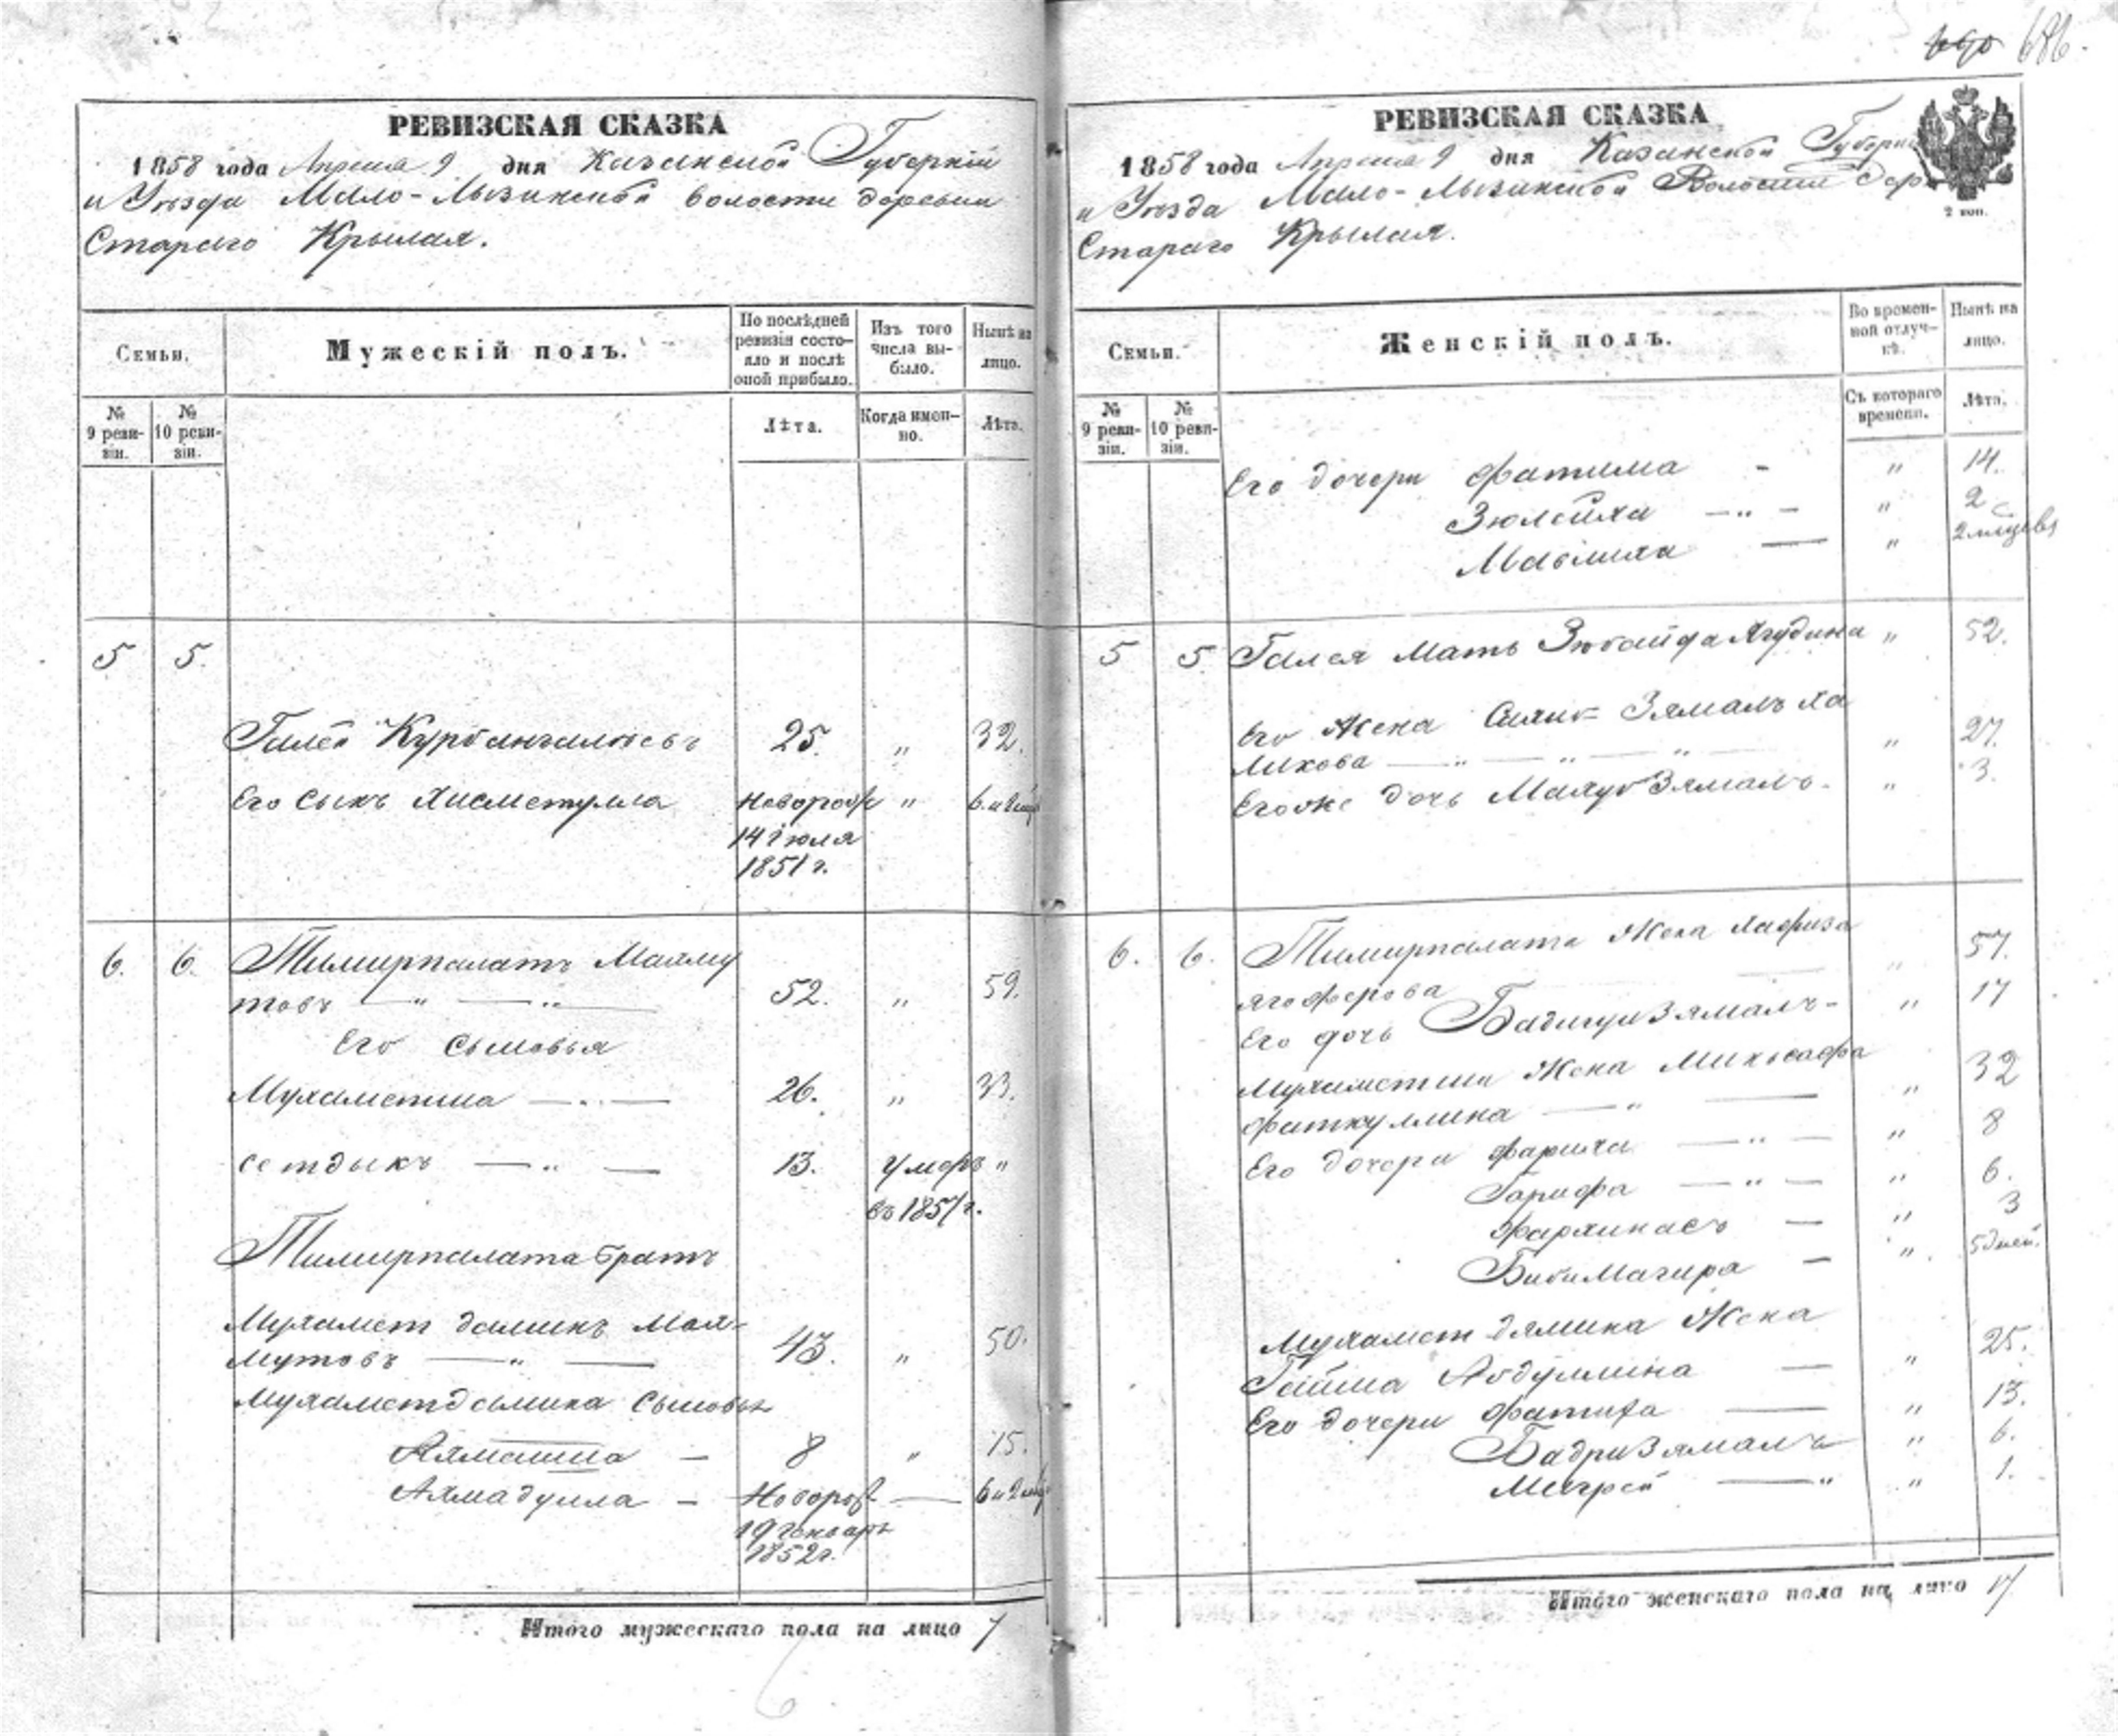 686.
РЕВИЗСКАЯ СКАЗКА
1858 года Апреля 9 дня Казанской Губерніи
и Уѣзда Мало-Лызинской волости деревни
Стараго Крылая.
Семьи.
Мужескій полъ.
По послѣдней ревизіи состояло и послѣ оной прибыло.
Изъ того числа выбыло.
Нынѣ на лицо.
№ 9 ревизіи.
№ 10 ревизіи.
Лѣта.
Когда именно.
Лѣта.
5 5.
Галей Курбангалеевъ 25. " 32.
Его сынъ Хисметулла Новорож " 6. и
14 іюля
1851 г.
6. 6. Тимирпалатъ Махму
товъ — " — " — 52. " 59.
Его сыновья
Мухаметша — " — 26. " 33.
Сетдыкъ — " — 13. умеръ "
въ 1857 г.
Тимирпалата братъ
Мухамет даминъ Мах-
мутовъ — " — 43. " 50.
Мухаметдамина сыновья
Ахметша — 8 " 15.
Ахмадулла — Новорож — 6 и
19 Генваря
1852 г.
Итого мужескаго пола на лицо 7
РЕВИЗСКАЯ СКАЗКА
1858 года Апреля 9 дня Казанской Губерніи
и Уѣзда Мало-Лызинской Волости дер
Стараго Крылая.
2 коп.
Семьи.
Женскій полъ.
Во временной отлучкѣ.
Нынѣ на лицо.
№ 9 ревизіи.
№ 10 ревизіи.
Съ котораго времени.
Лѣта.
Его дочери Фатима - " 14.
Зюлейха — " — " 2
— " 2
5 5 Галея Мать Зюбайда Ягудина " 52.
Его Жена Зямалъ Ха
ликова — " — " — " 27.
Егоже дочь Махуб Зямалъ. " 3.
6. 6. Тимирпалата Жена Хафиза
Ягоферова " 57.
Его дочь Бадигузямалъ- " 17
Мухаметши Жена
Фаткуллина — " — " 32
Его дочери Фариха — " — " 8
Гарифа — " — " 6.
— " 3
БибиМагира — " 5 дней.
Мухамет дямина Жена
Абдуллина — " 25.
Его дочери Фатиха — " 13.
БадриЗямалъ " 6.
— " " 1.
Итого женскаго пола на лицо 17